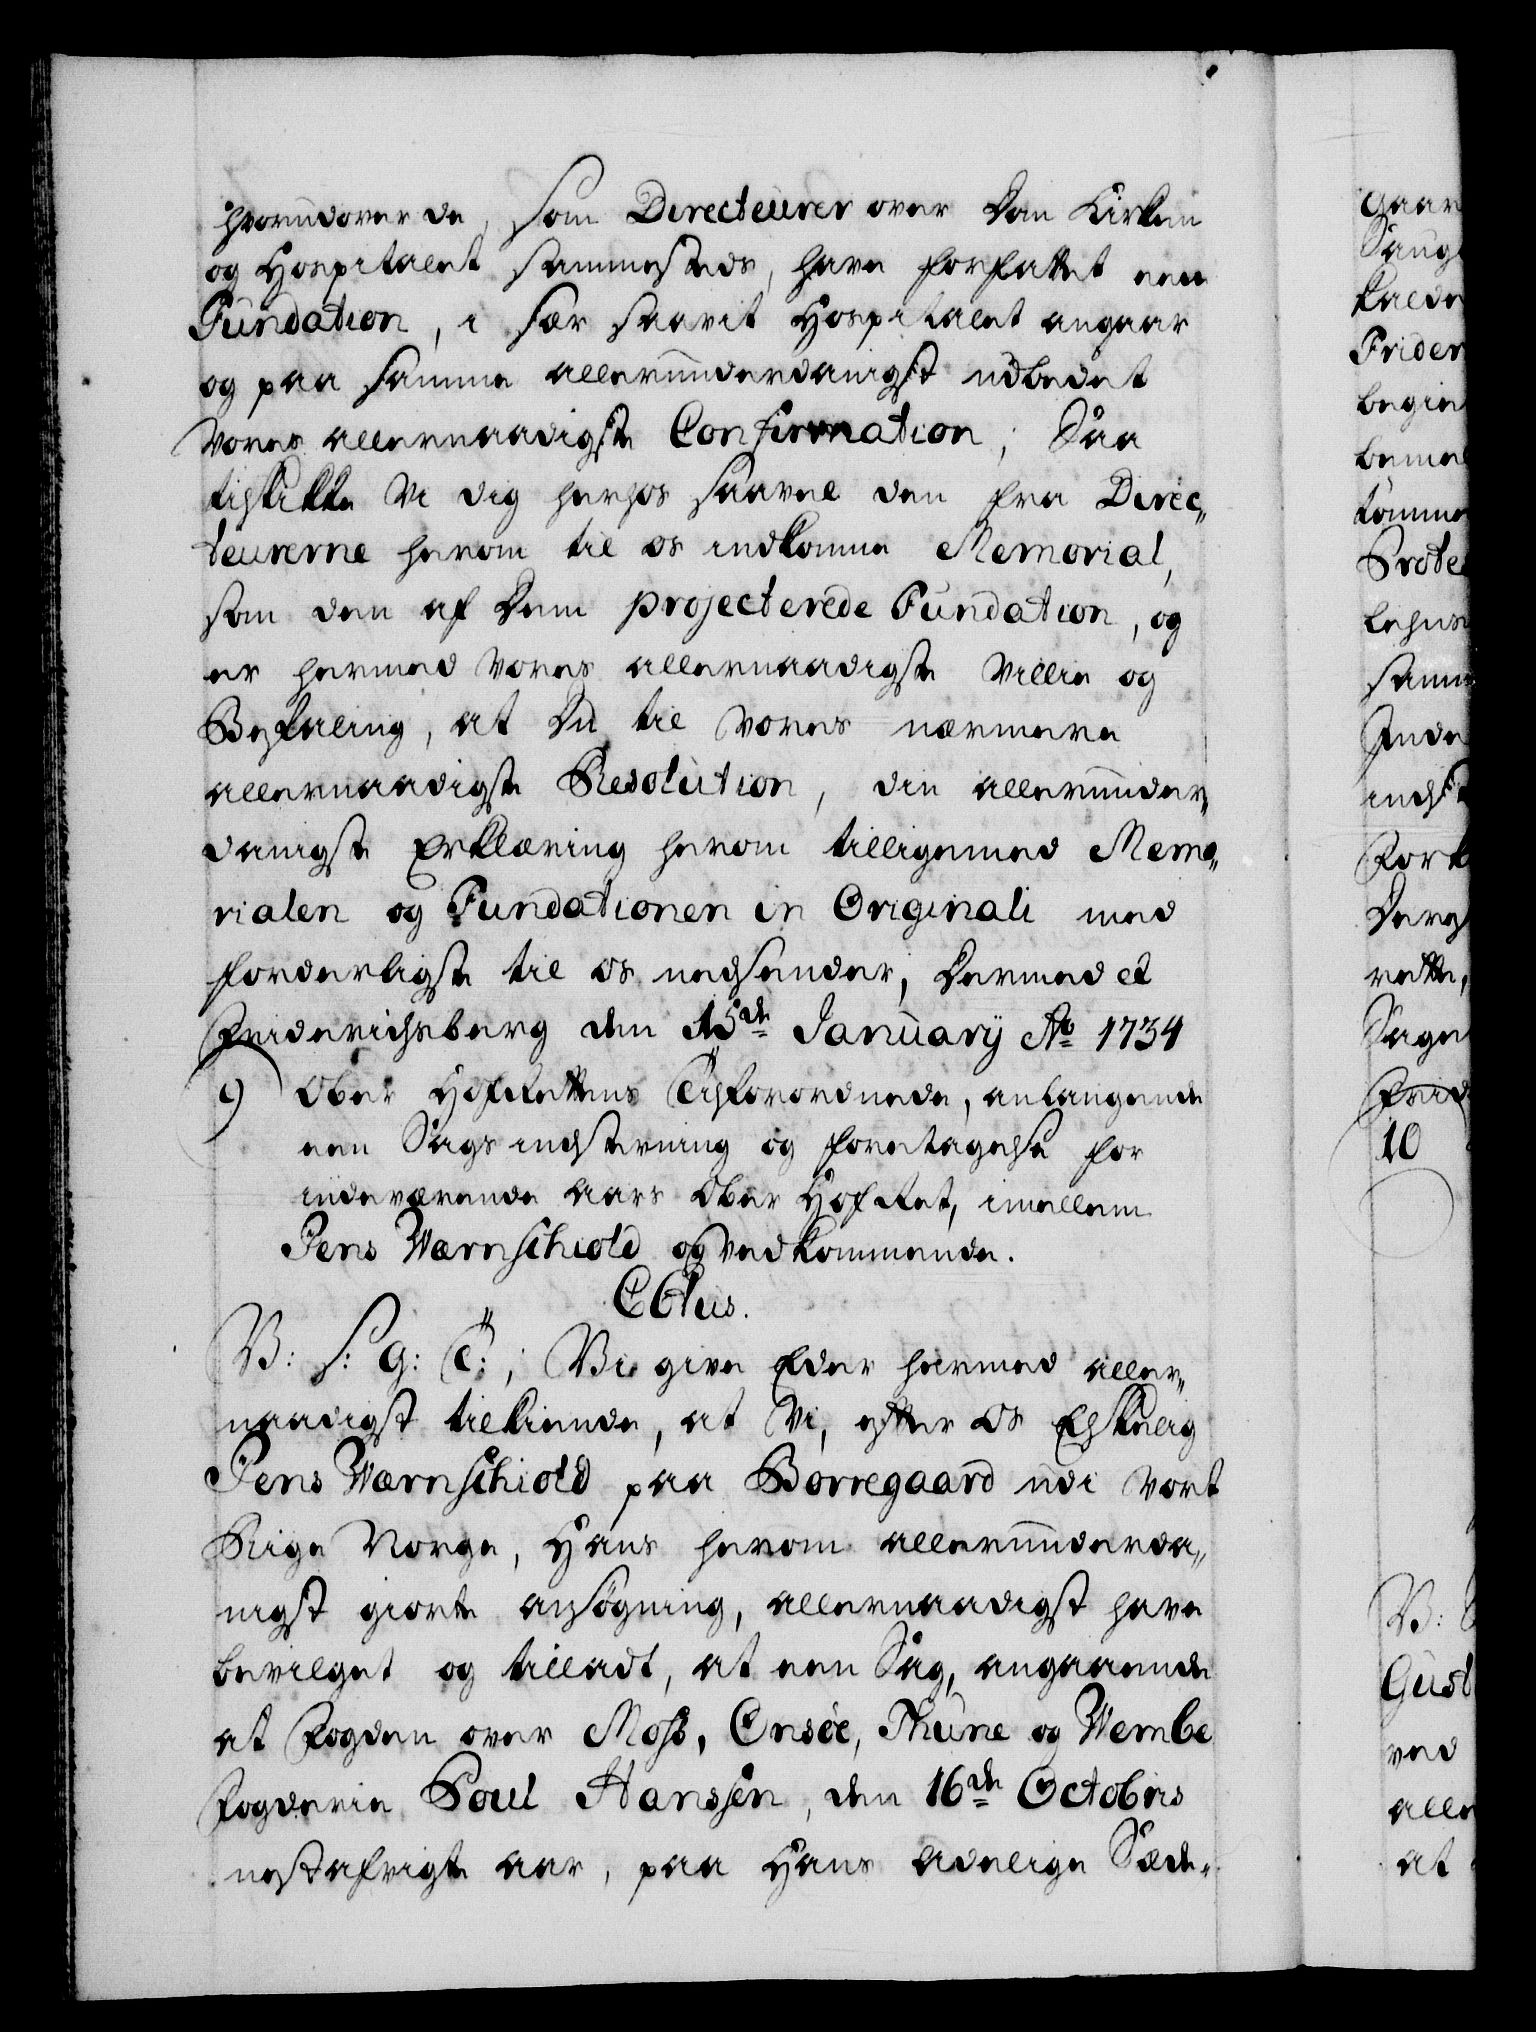 hvorudover de, som Directeurer over Dom Kirken
og Hospitalet sammesteds, have forfattet een
Fundation, i sær saavit Hospitalet angaar
og paa samme allerunderdanigst udbedet
Vores allernaadigste Confirmation; Saa
tilskikke Vi dig herhos saavel den fra Direc„
teurerne herom til os indkomne Memorial,
som den af Dem projecterede Fundation, og
er hermed Vores allernaadigste Villie og
Befaling, at Du til Vores nærmere
allernaadigste Resolution, din allerunder„
danigste Erklæring herom tilligemed Memo„
rialen og Fundationen in Originali med
forderligste til os nedsender, Dermed et
Friderichsberg den 15de January Ao 1734
9) Ober Hof-Rettens Tilforordnede, anlangende
een Sags indstevning og foretagelse for
indeværende Aars Ober Hof-Ret, imellem
Jens Wærnschiold og Vedkommende.
C6tus.
V: S: G: T:; Vi give Eder hermed aller„
naadigst tilkiende, at Vi, efter Os Elskelig
Jens Wærnschiold paa Borregaard udi Vort
Rige Norge, Hans herom allerunderda„
nigst giorte ansøgning, allernaadigst have
bevilget og tilladt, at een Sag, angaaende
at Fogden over Moss, Onsöe, Thune og Wembe
Fogderie Poul Hanssen, den 16de Octobris
nestafvigte Aar, paa Hans Adelige Sæde„
Gaar
Saug
kalde
Frider
begie
beme
tömme
Prote
Lehns
samm
Inde
indst
Fork
Derg
rette,
Sage
Frid
10
V: S
Gust
ved
alle
at